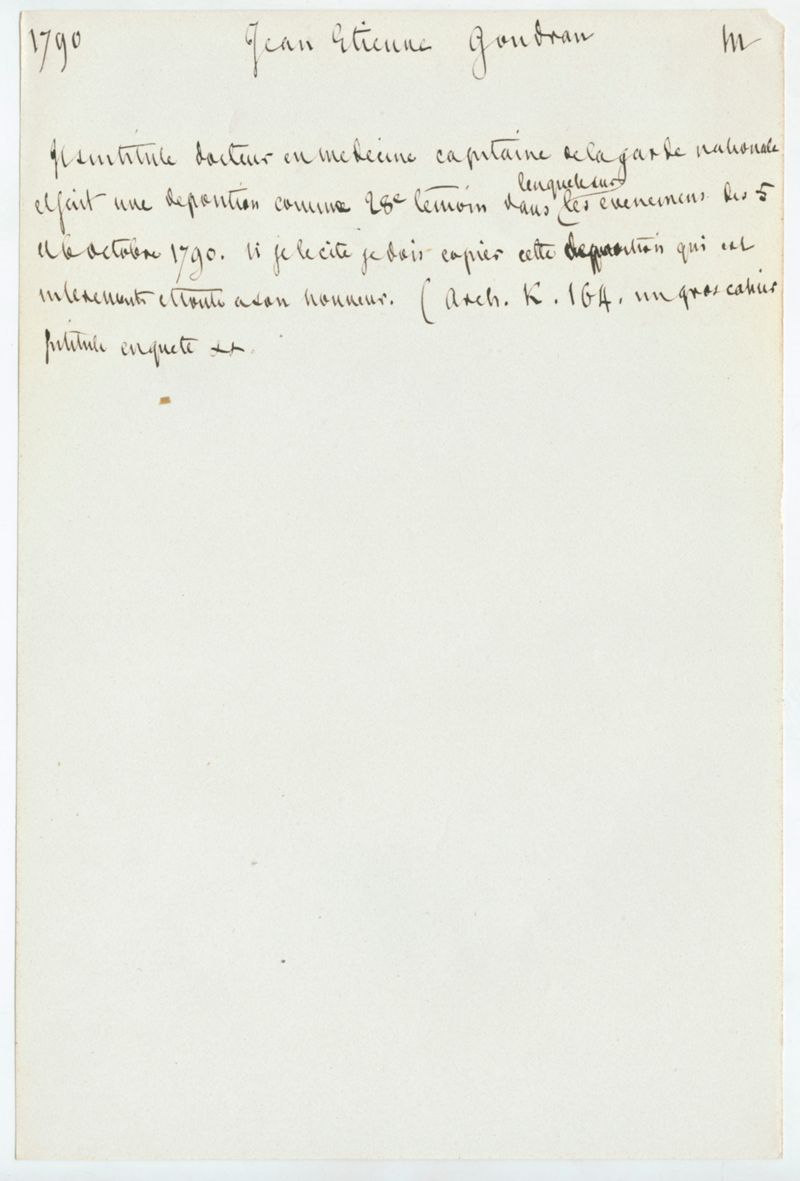 1790 Jean Etienne Gondran M
Il s'intitule docteur en medecine capitaine de la garde nationale
et fait une deposition comme 28e temoin dans l'enquete sur les evenemens des 5
et 6 octobre 1790. si je le cite je dois copier cette deposition qui est
interessante et toute a son honneur. (Arch. K. 164. un gros cahier
intitulé enquete